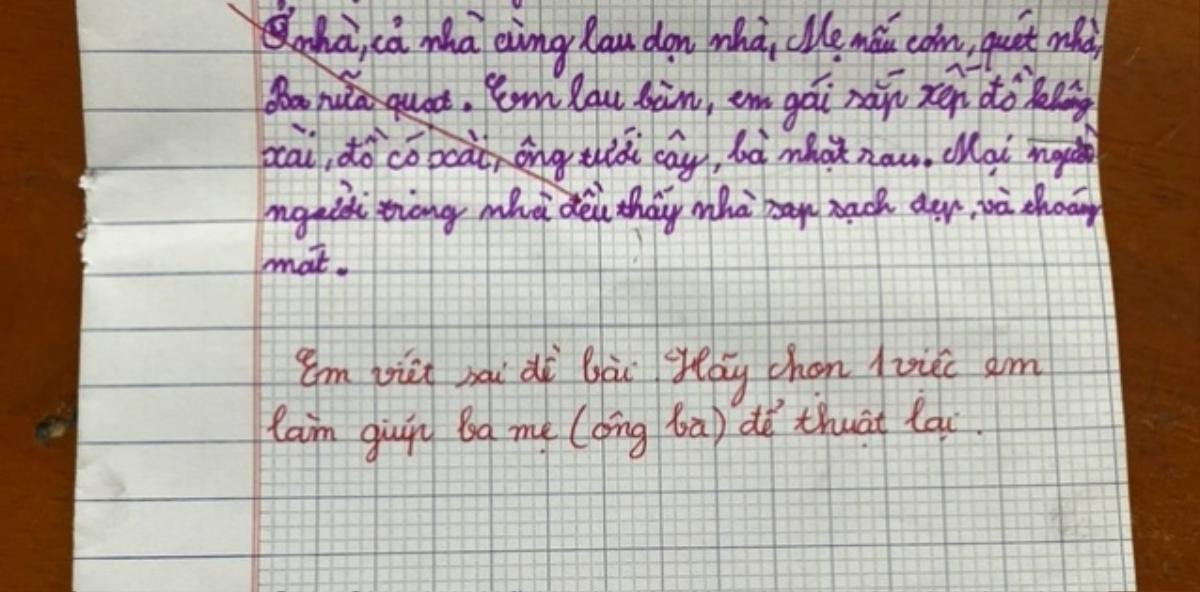 Ở nhà, cả nhà cùng lau dọn nhà, Mẹ nấu cơm, quét nhà,
Ba rửa quạt. Em lau bàn, em gái sắp xếp đồ không
xài, đồ có xài, ông tưới cây, bà nhặt rau. Mọi người
người trong nhà đều thấy nhà sạp sạch đẹp, và thoáng
mát.
Em viết sai đề bài. Hãy chọn 1 việc em
làm giúp ba mẹ (ông bà) để thuật lại.